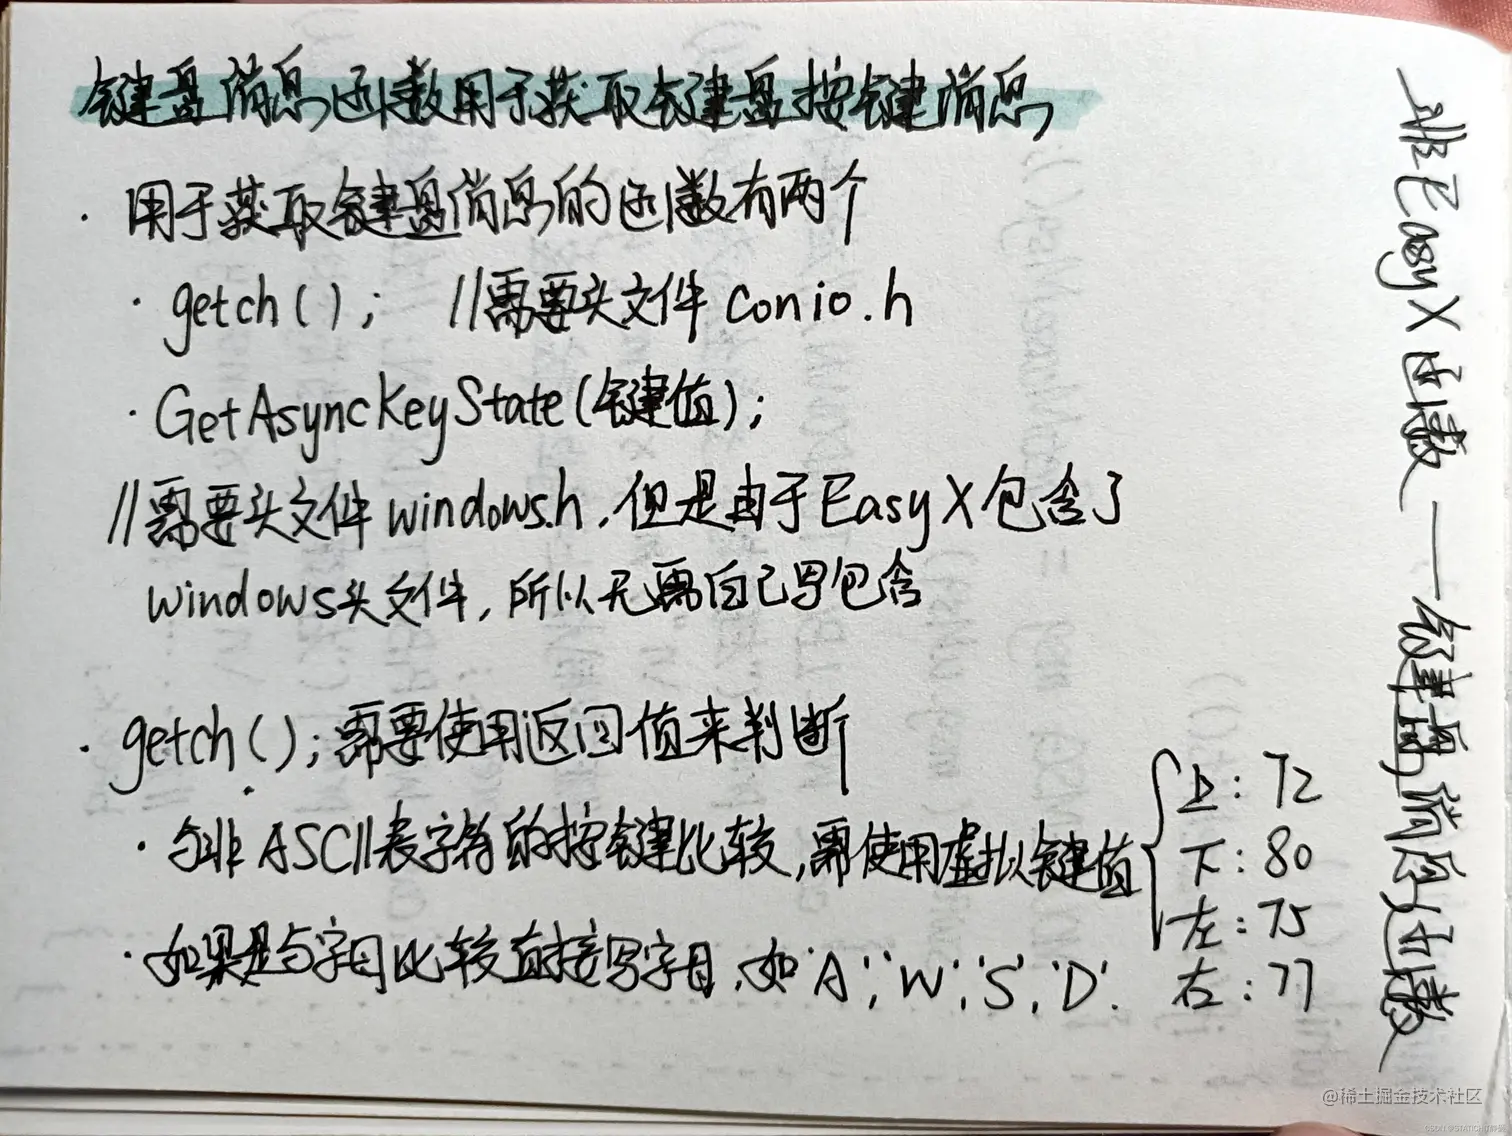 键盘消息函数用于获取键盘按键消息
· 用于获取键盘消息的函数有两个
· getch(); //需要头文件 conio.h
· GetAsyncKeyState(键值);
//需要头文件 windows.h,但是由于EasyX包含了
windows头文件,所以无需自己写包含
· getch();需要使用返回值来判断
· 与非ASCII表字符的按键比较,需使用虚拟键值
上:72
下:80
左:75
右:77
· 如果是与字母比较直接写字母,如'A','W','S','D'.
EasyX函数——键盘消息函数
@稀土掘金技术社区